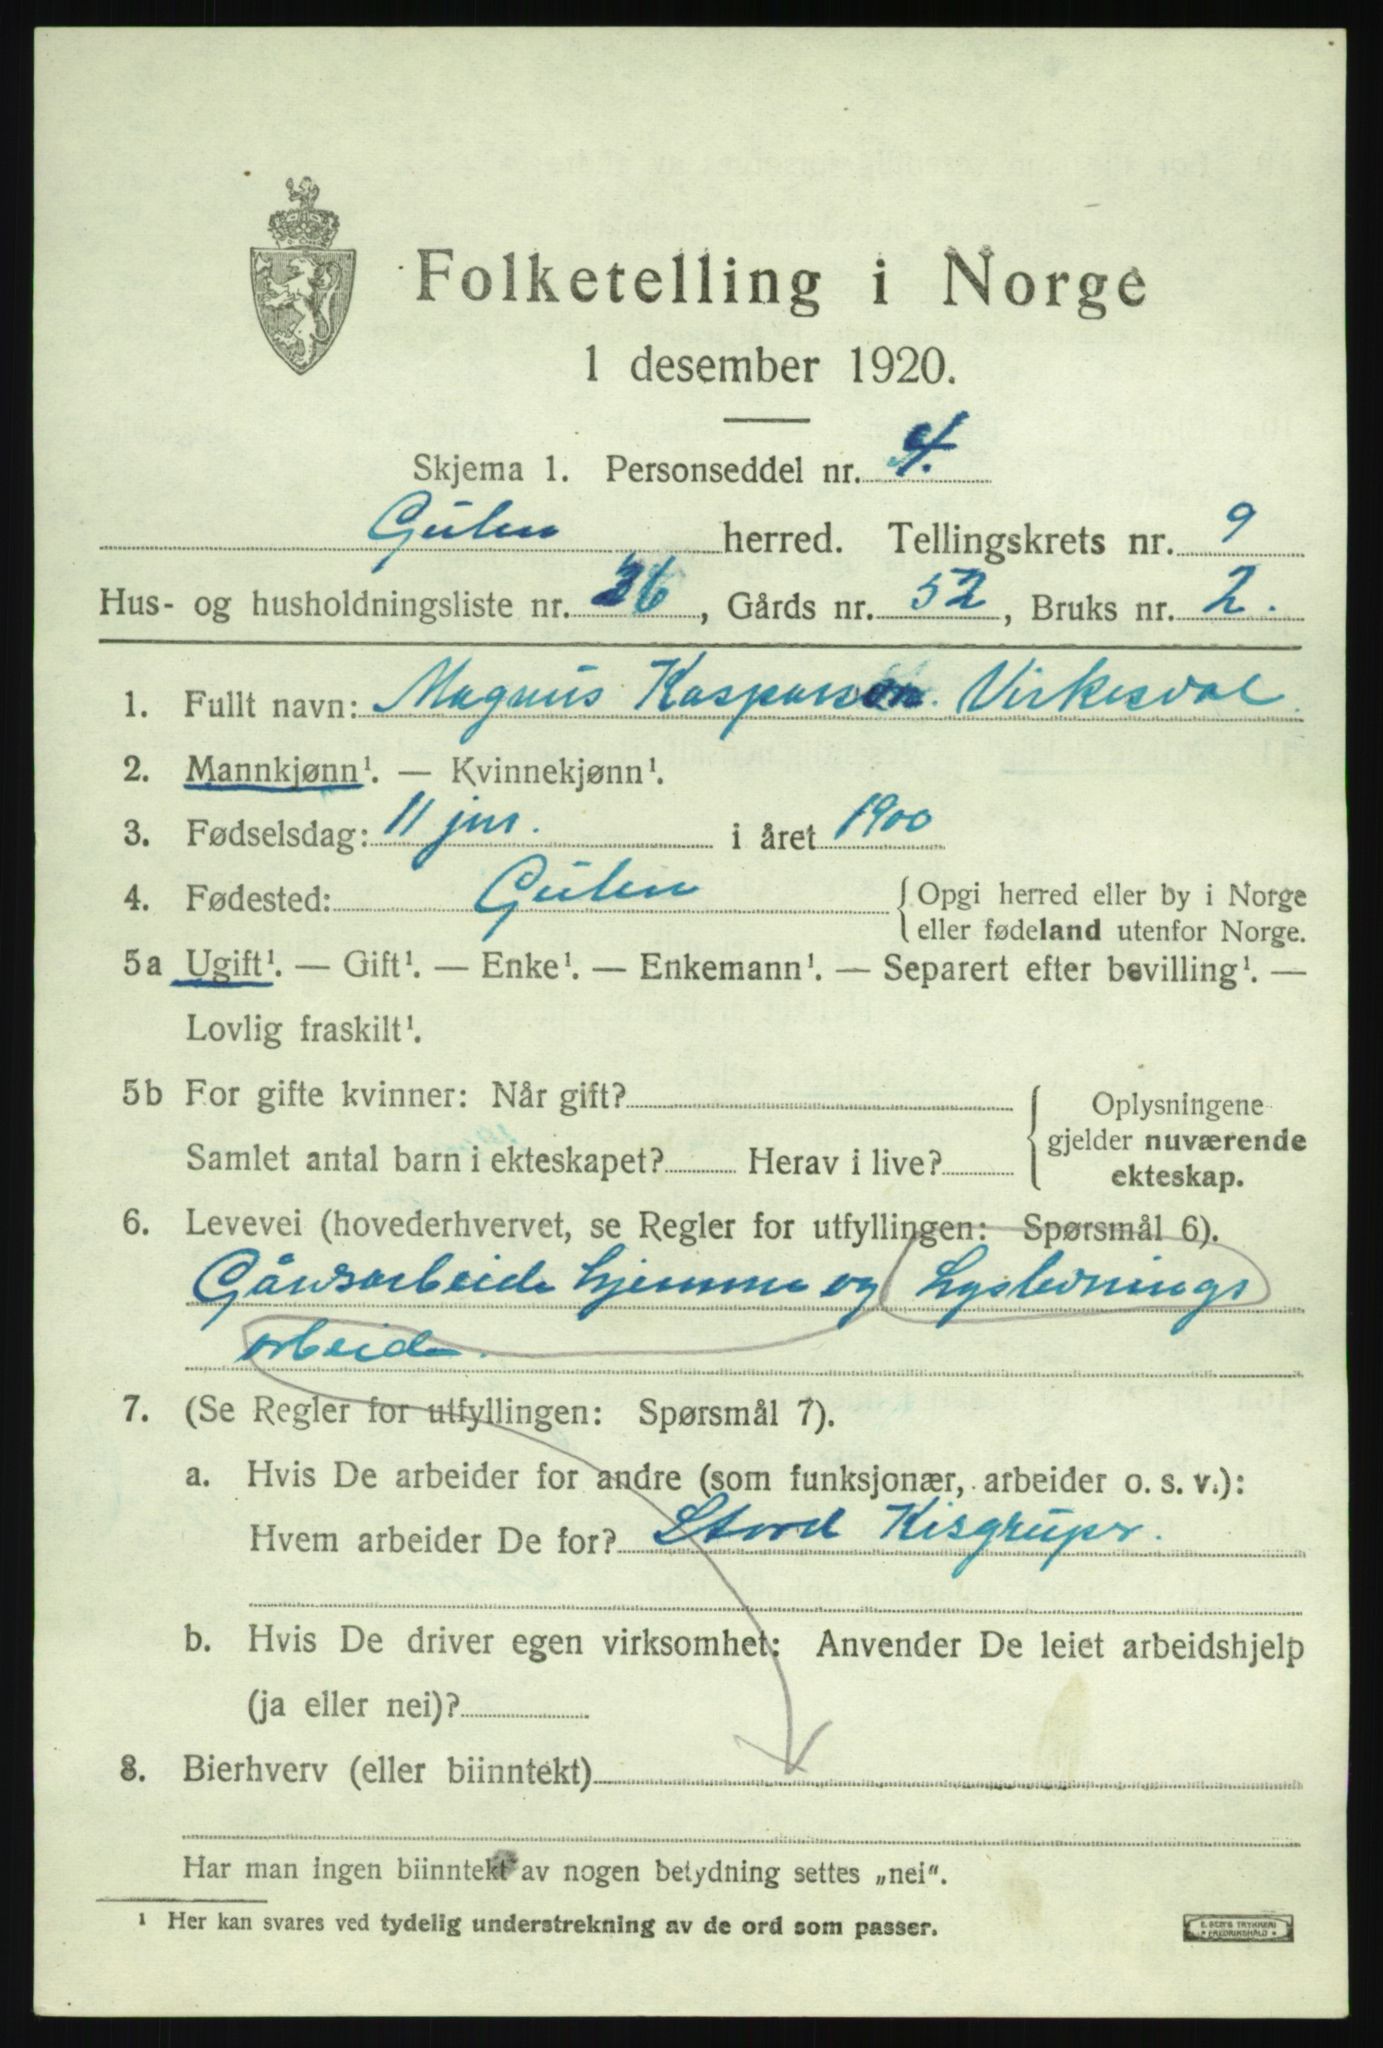 Folketelling i Norge
1 desember 1920.
Skjema 1. Personseddel nr. 4.
Gulen herred. Tellingskrets nr. 9
Hus- og husholdningsliste nr. 36, Gårds nr. 52, Bruks nr. 2.
1. Fullt navn: Magnus Kasparsen. Virkesdal
2. Mannkjønn¹. — Kvinnekjønn¹.
3. Fødselsdag: 11 jan. i året 1900
4. Fødested: Gulen {Opgi herred eller by i Norge
eller fødeland utenfor Norge.
5a Ugift¹. — Gift¹. — Enke¹. — Enkemann¹. — Separert efter bevilling¹. —
Lovlig fraskilt¹.
5b For gifte kvinner: Når gift?
Samlet antal barn i ekteskapet? Herav i live?
Oplysningene
gjelder nuværende
ekteskap.
6. Levevei (hovederhvervet, se Regler for utfyllingen: Spørsmål 6).
Gårsarbeide hjemme og Lyslednings
arbeide.
7. (Se Regler for utfyllingen: Spørsmål 7).
a. Hvis De arbeider for andre (som funksjonær, arbeider o. s. v.):
Hvem arbeider De for? Stord Kisgruper.
b. Hvis De driver egen virksomhet: Anvender De leiet arbeidshjelp
(ja eller nei)?
8. Bierhverv (eller biinntekt)
Har man ingen biinntekt av nogen betydning settes „nei".
¹ Her kan svares ved tydelig understrekning av de ord som passer.
E. SEM'S TRYKKERI
FREDRIKSHALD